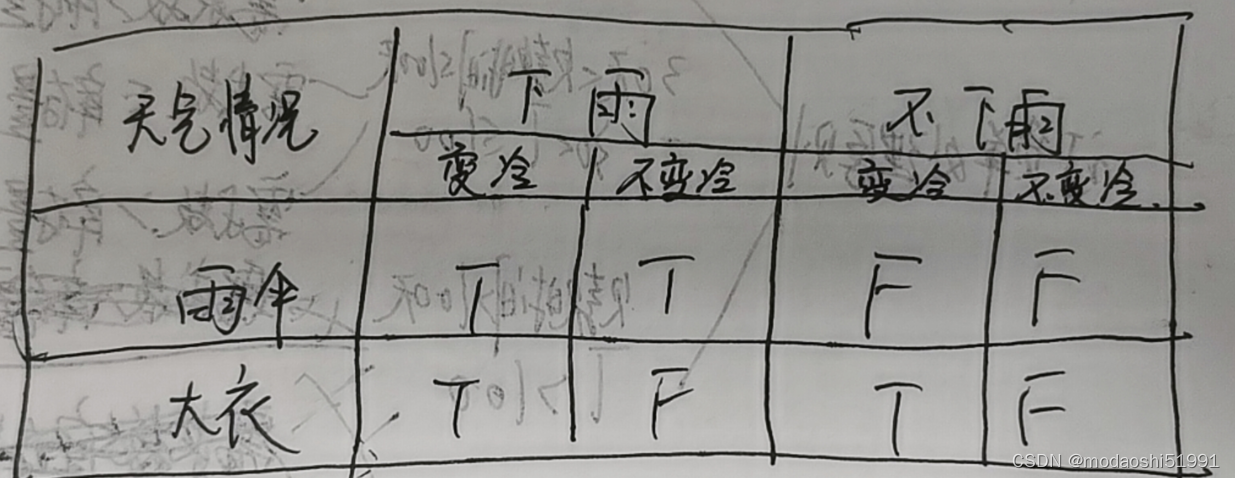 天气情况 下雨 不下雨
变冷 不变冷 变冷 不变冷
雨伞 T T F F
大衣 T F T F
CSDN @modaoshi51991